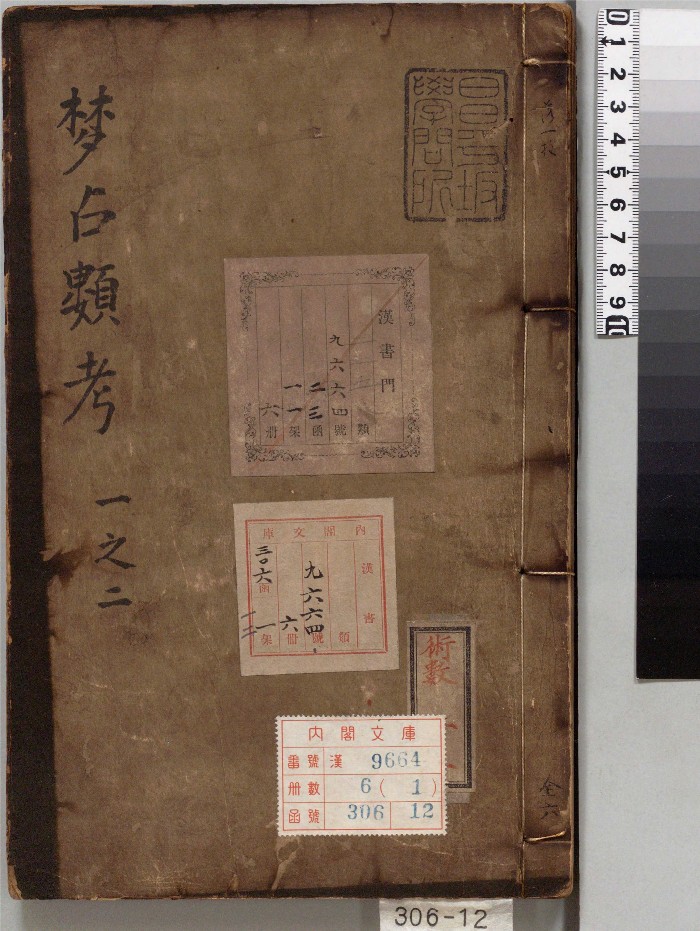 梦占類考
一之二
昌平坂
學問所
漢書門
類
九六六四號
二三函
一一架
六册
內閣文庫
漢書
類
九六六四號
六冊
三〇六函
一架
術數
內閣文庫
番號 漢 9664
册數 6(1)
函號 306 12
全六
306-12
0 1 2 3 4 5 6 7 8 9 10